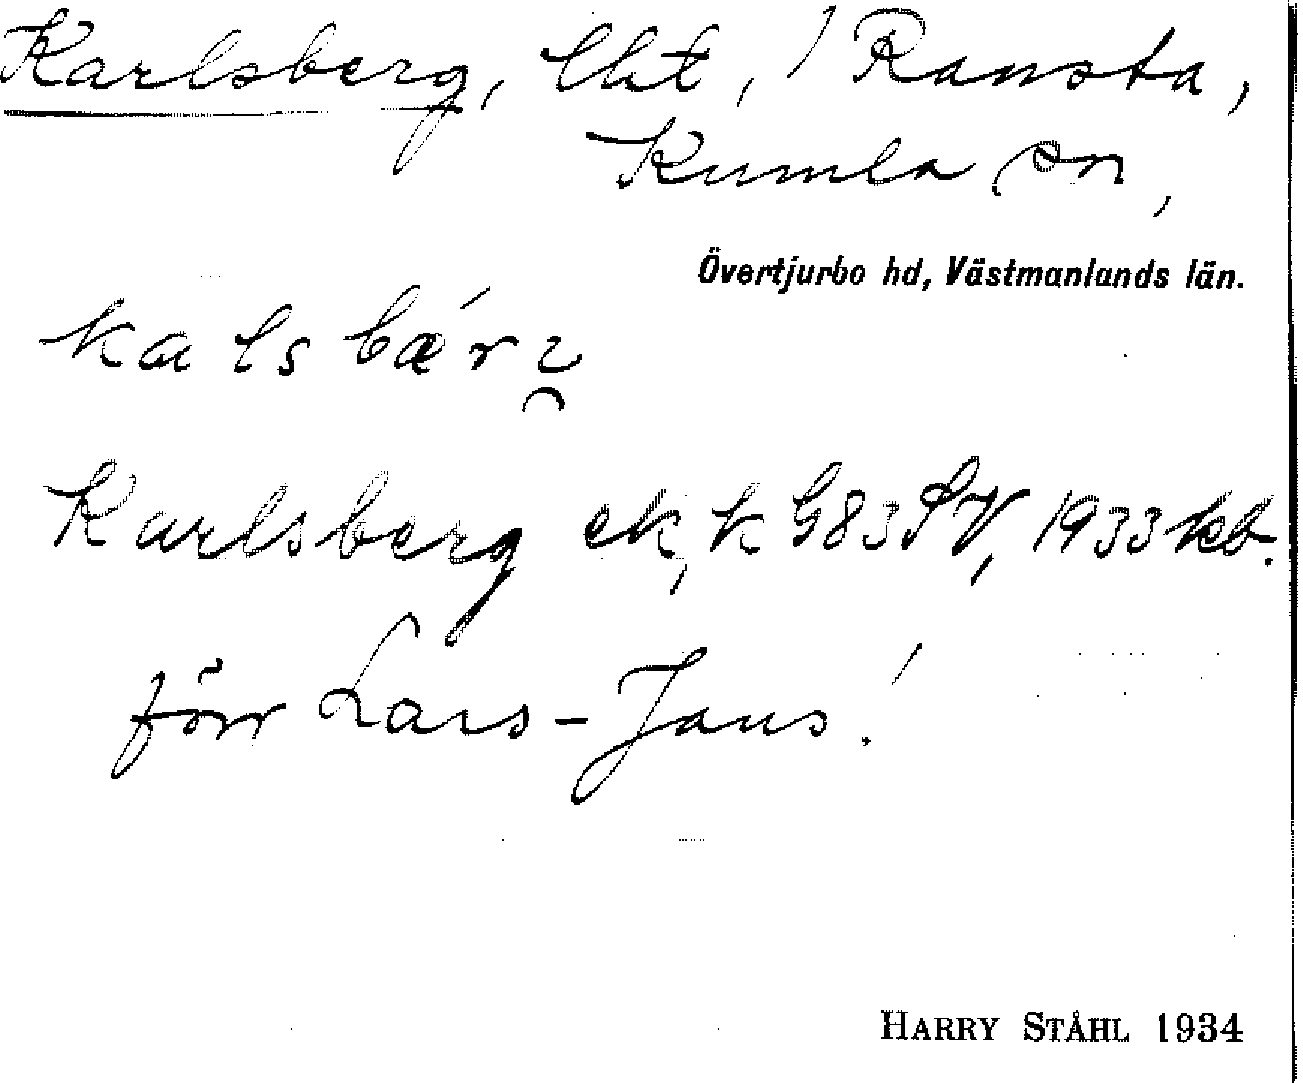 Karlsberg, lht, / Ransta,
Kumla sn,
Övertjurbo hd, Västmanlands län.
kalsbær
Karlsberg ek, k G83SV, 1933 kb.
förr Lars-Jans!
HARRY STÅHL 1934